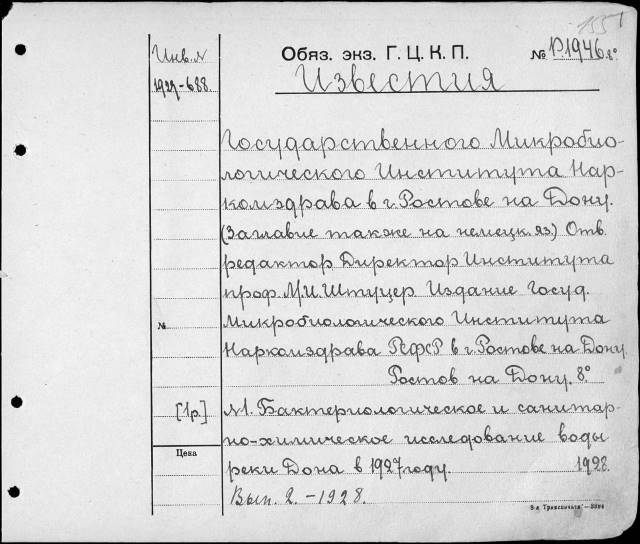 155
Инв. N
1927-688.
Обяз. экз. Г. Ц. К. П.
№ Р.1946 8°
Известия
Государственного Микробио-
логического Института Нар-
комздрава в г. Ростове на Дону.
(Заглавие также на немецк. яз.) Отв.
редактор Директор Института
проф. М.И. Штуцер. Издание Госуд.
№ Микробиологического Института
Наркомздрава РСФСР в г. Ростове на Дону.
Ростов на Дону. 8°
[1р.] N1. Бактериологическое и санитар-
но-химическое исследование воды
Цена
реки Дона в 1927 году. 1928.
Вып. 2. - 1928.